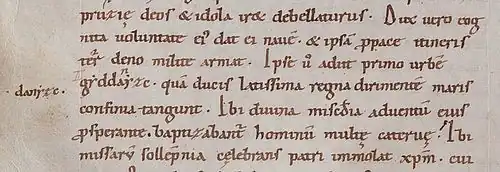 pruzię deos & idola iret debellaturus. Dux u̅o cog
nita uoluntate ei' dat ei naue̅. & ipsa̅ p̱pace itineris
ter deno milite armat. Ipse u̅ adiit primo urbe̅
gyddanyzc. qua̅ ducis latissima regna dirimente̅ maris
danyzc.
confinia tangunt. Ibi diuina mise̅dia aduentu̅ eius
ꝓsperante. baptizabant' hominu̅ multę cateruę. Ibi
missaru̅ sollepnia celebrans patri immolat xp̅m. cui